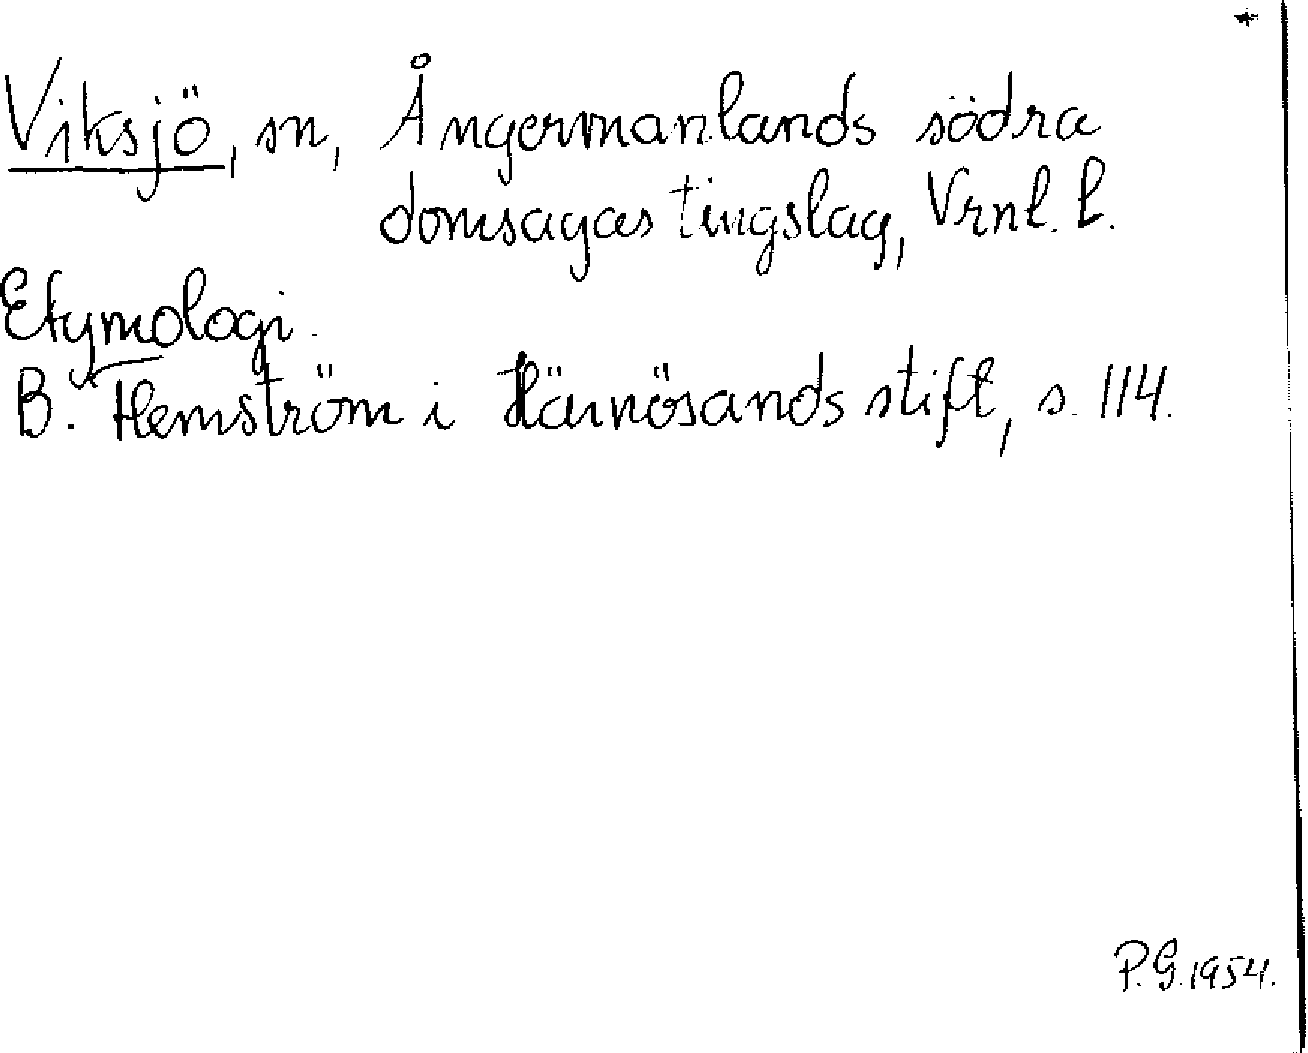 Viksjö, sn, Ångermanlands södra
domsagas tingslag, Vrnl. l.
Etymologi.
B. Hemström i Härnösands stift, s. 114.
P.G. 1954.